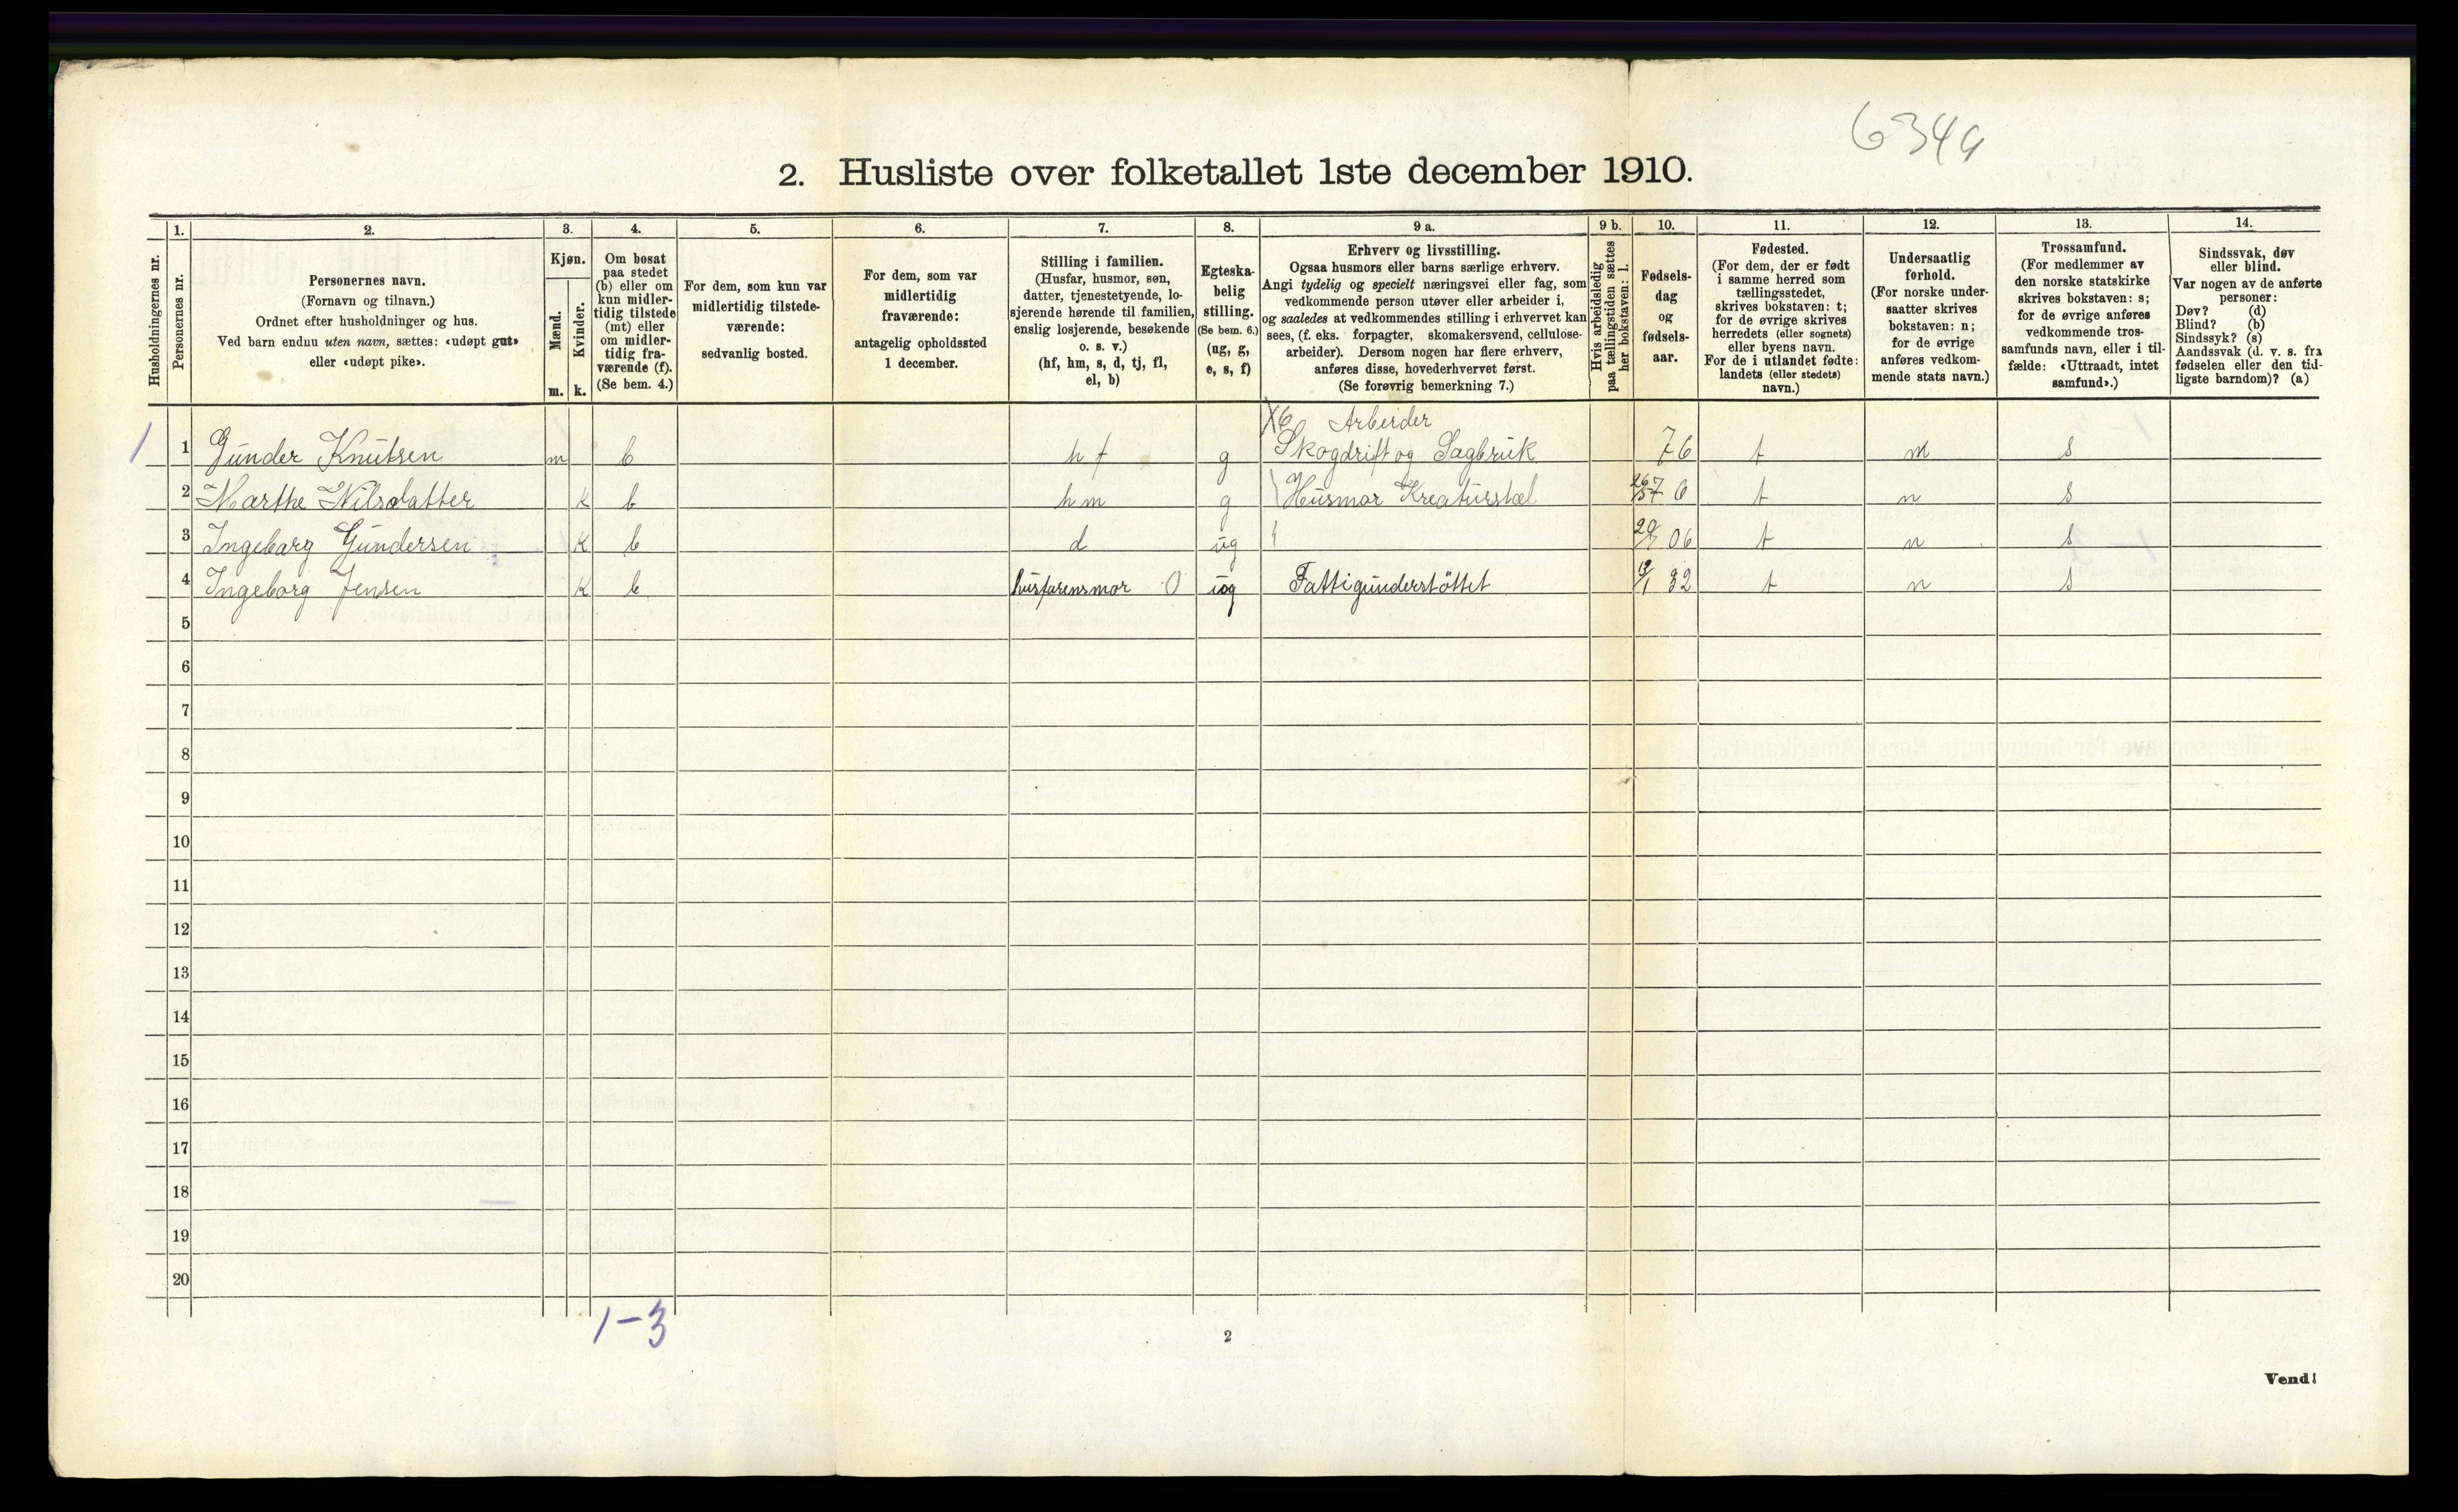 6349
2. Husliste over folketallet 1ste december 1910.
Husholdningernes nr.
1.
Personernes nr.
2.
Personernes navn.
(Fornavn og tilnavn.)
Ordnet efter husholdninger og hus.
Ved barn endnu uten navn, sættes: «udøpt gut»
eller «udøpt pike».
3.
Kjøn.
Mænd.
Kvinder.
m. k.
4.
Om bosat
paa stedet
(b) eller om
kun midler-
tidig tilstede
(mt) eller
om midler-
tidig fra-
værende (f).
(Se bem. 4.)
5.
For dem, som kun var
midlertidig tilstede-
værende:
sedvanlig bosted.
6.
For dem, som var
midlertidig
fraværende:
antagelig opholdssted
1 december.
7.
Stilling i familien.
(Husfar, husmor, søn,
datter, tjenestetyende, lo-
sjerende hørende til familien,
enslig losjerende, besøkende
o. s. v.)
(hf, hm, s, d, tj, fl,
el, b)
8.
Egteska-
belig
stilling.
(Se bem. 6.)
(ug, g,
e, s, f)
9 a.
Erhverv og livsstilling.
Ogsaa husmors eller barns særlige erhverv.
Angi tydelig og specielt næringsvei eller fag, som
vedkommende person utøver eller arbeider i,
og saaledes at vedkommendes stilling i erhvervet kan
sees, (f. eks. forpagter, skomakersvend, cellulose-
arbeider). Dersom nogen har flere erhverv,
anføres disse, hovederhvervet først.
(Se forøvrig bemerkning 7.)
9 b.
Hvis arbeidsledig
paa tællingstiden sættes
her bokstaven: l.
10.
Fødsels-
dag
og
fødsels-
aar.
11.
Fødested.
(For dem, der er født
i samme herred som
tællingsstedet,
skrives bokstaven: t;
for de øvrige skrives
herredets (eller sognets)
eller byens navn.
For de i utlandet fødte:
landets (eller stedets)
navn.)
12.
Undersaatlig
forhold.
(For norske under-
saatter skrives
bokstaven: n;
for de øvrige
anføres vedkom-
mende stats navn.)
13.
Trossamfund.
(For medlemmer av
den norske statskirke
skrives bokstaven: s;
for de øvrige anføres
vedkommende tros-
samfunds navn, eller i til-
fælde: «Uttraadt, intet
samfund».)
14.
Sindssvak, døv
eller blind.
Var nogen av de anførte
personer:
Døv? (d)
Blind? (b)
Sindssyk? (s)
Aandssvak (d. v. s. fra
fødselen eller den tid-
ligste barndom)? (a)
X6 Arbeider
1 1 Gunder Knutsen m b hf g Skogdrift og Sagbruk 76 t n s
2 Marthe Nilsdatter k b hm g Husmor Kreaturstel 6 t n s
3 Ingeborg Gundersen k b d ug 06 t n s
4 Ingeborg Jensen k b husfarensmor O ug Fattigunderstöttet 32 t n s
5
6
7
8
9
10
11
12
13
14
15
16
17
18
19
20
1-3
2
Vend!